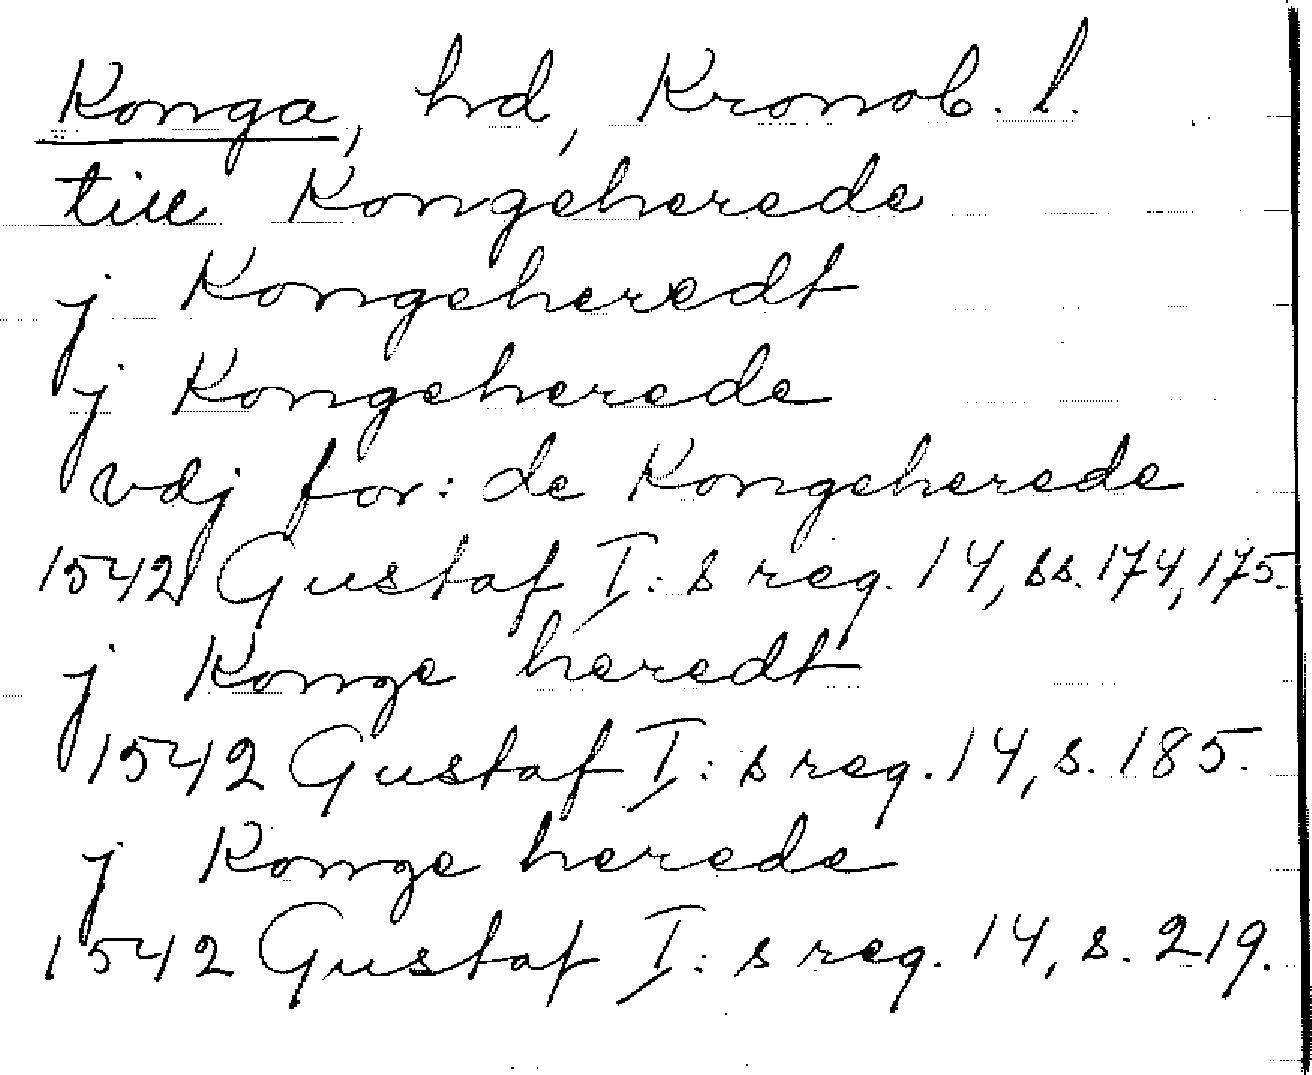 Konga, hd, Kronob. l.
till Kongeherede
j Kongeheredt
j Kongeherede
vdj for: de Kongeherede
1542 Gustaf I:s reg. 14, ss. 174, 175.
j Konge heredt
1542 Gustaf I:s reg. 14, s. 185.
j Konge herede
1542 Gustaf I:s reg. 14, s. 219.